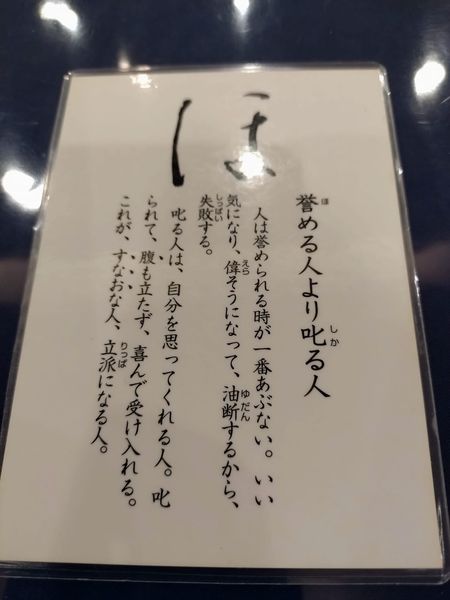 ほ
誉める人より叱る人
人は誉められる時が一番あぶない。いい
気になり、偉そうになって、油断するから、
失敗する。
叱る人は、自分を思ってくれる人。叱
られて、腹も立たず、喜んで受け入れる。
これが、すなおな人、立派になる人。